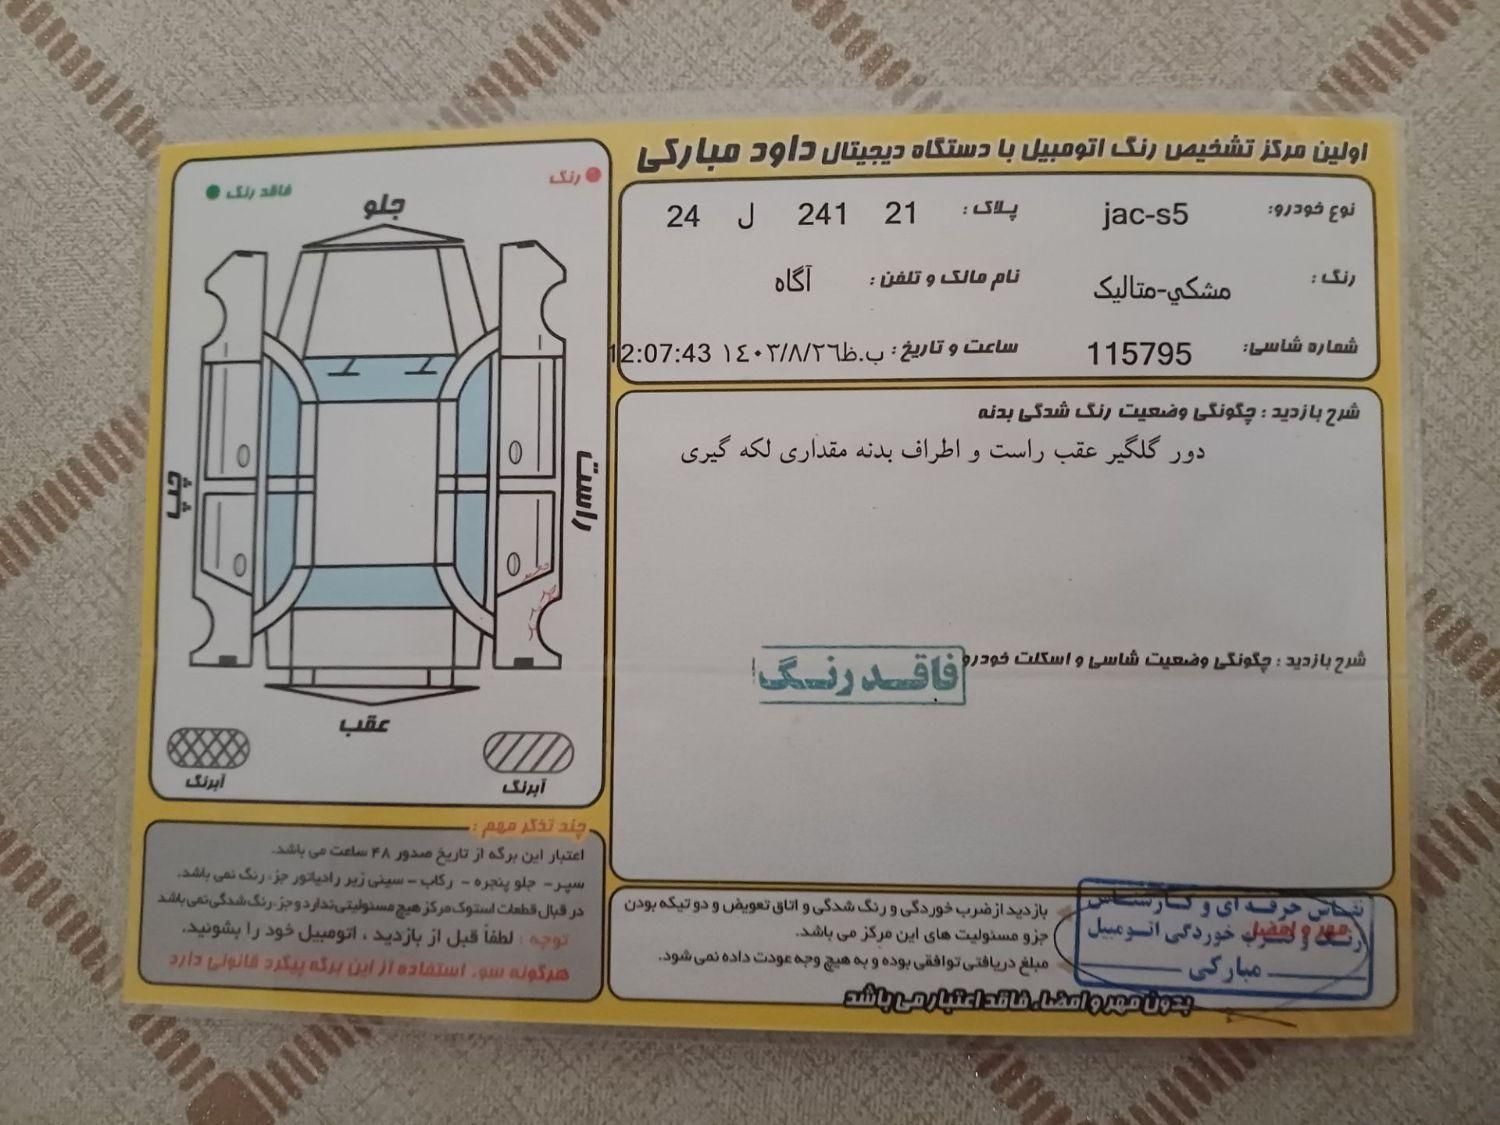 اولین مرکز تشخیص رنگ اتومبیل با دستگاه دیجیتال داود مبارکی
نوع خودرو: jac-s5 پلاک: 21 241 ل 24
رنگ: مشکي-متالیک نام مالک و تلفن: آگاه
شماره شاسی: 115795 ساعت و تاریخ: ب.ظ ١٤٠٣/٨/٢٦ 12:07:43
شرح بازدید: چگونگی وضعیت رنگ شدگی بدنه
دور گلگیر عقب راست و اطراف بدنه مقداری لکه گیری
شرح بازدید: چگونگی وضعیت شاسی و اسکلت خودرو
فاقد رنگ
بازدید از ضرب خوردگی و رنگ شدگی و اتاق تعویض و دو تیکه بودن
جزو مسئولیت های این مرکز می باشد.
مبلغ دریافتی توافقی بوده و به هیچ وجه عودت داده نمی شود.
مهر و امضا
شناس حرفه ای و کارشناس
رنگ و ضرب خوردگی اتومبیل
مبارکی
بدون مهر و امضاء فاقد اعتبار می باشد
رنگ
فاقد رنگ
جلو
راست
چپ
عقب
آبرنگ
آبرنگ
چند تذکر مهم:
اعتبار این برگه از تاریخ صدور ۴۸ ساعت می باشد.
سپر - جلو پنجره - رکاب - سینی زیر رادیاتور جزء رنگ نمی باشد.
در قبال قطعات استوک مرکز هیچ مسئولیتی ندارد و جزء رنگ شدگی نمی باشد
توجه: لطفاً قبل از بازدید، اتومبیل خود را بشوئید.
هرگونه سوء استفاده از این برگه پیگرد قانونی دارد